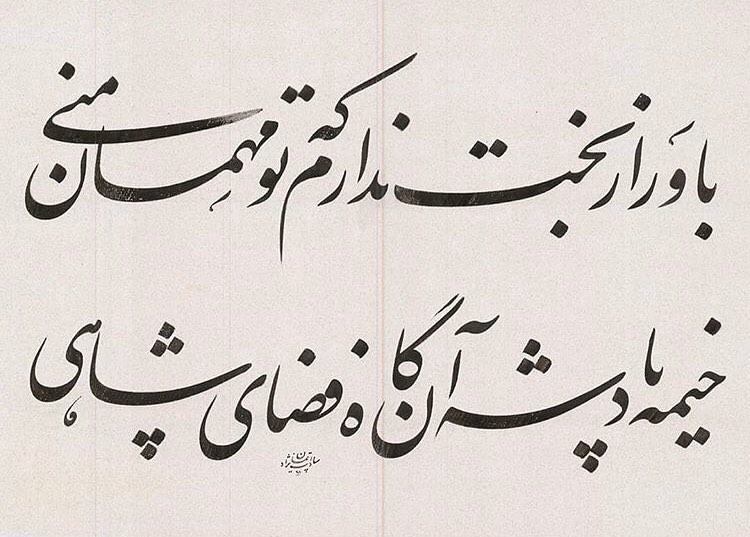 باور از بخت ندارم که تو مهمان منی
خیمه پادشه آن گاه فضای شاهی